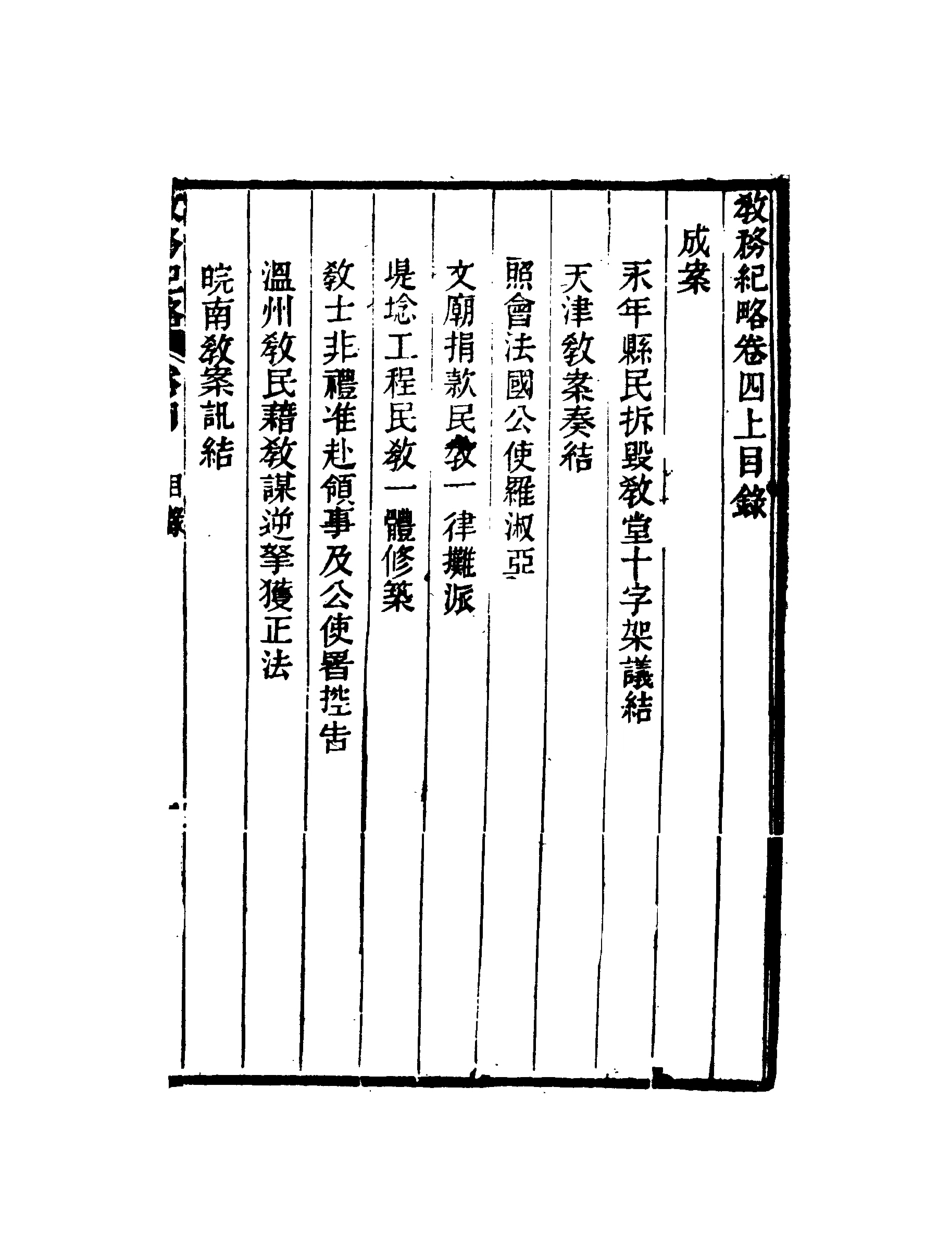 敎務紀略卷四上目錄
成案
永年縣民拆毀敎堂十字架議結
天津敎案奏結
照會法國公使羅淑亞
文廟捐款民敎一律攤派
堤埝工程民敎一體修築
敎士非禮准赴領事及公使署控告
溫州敎民藉敎謀逆拏獲正法
皖南敎案訊結
目錄